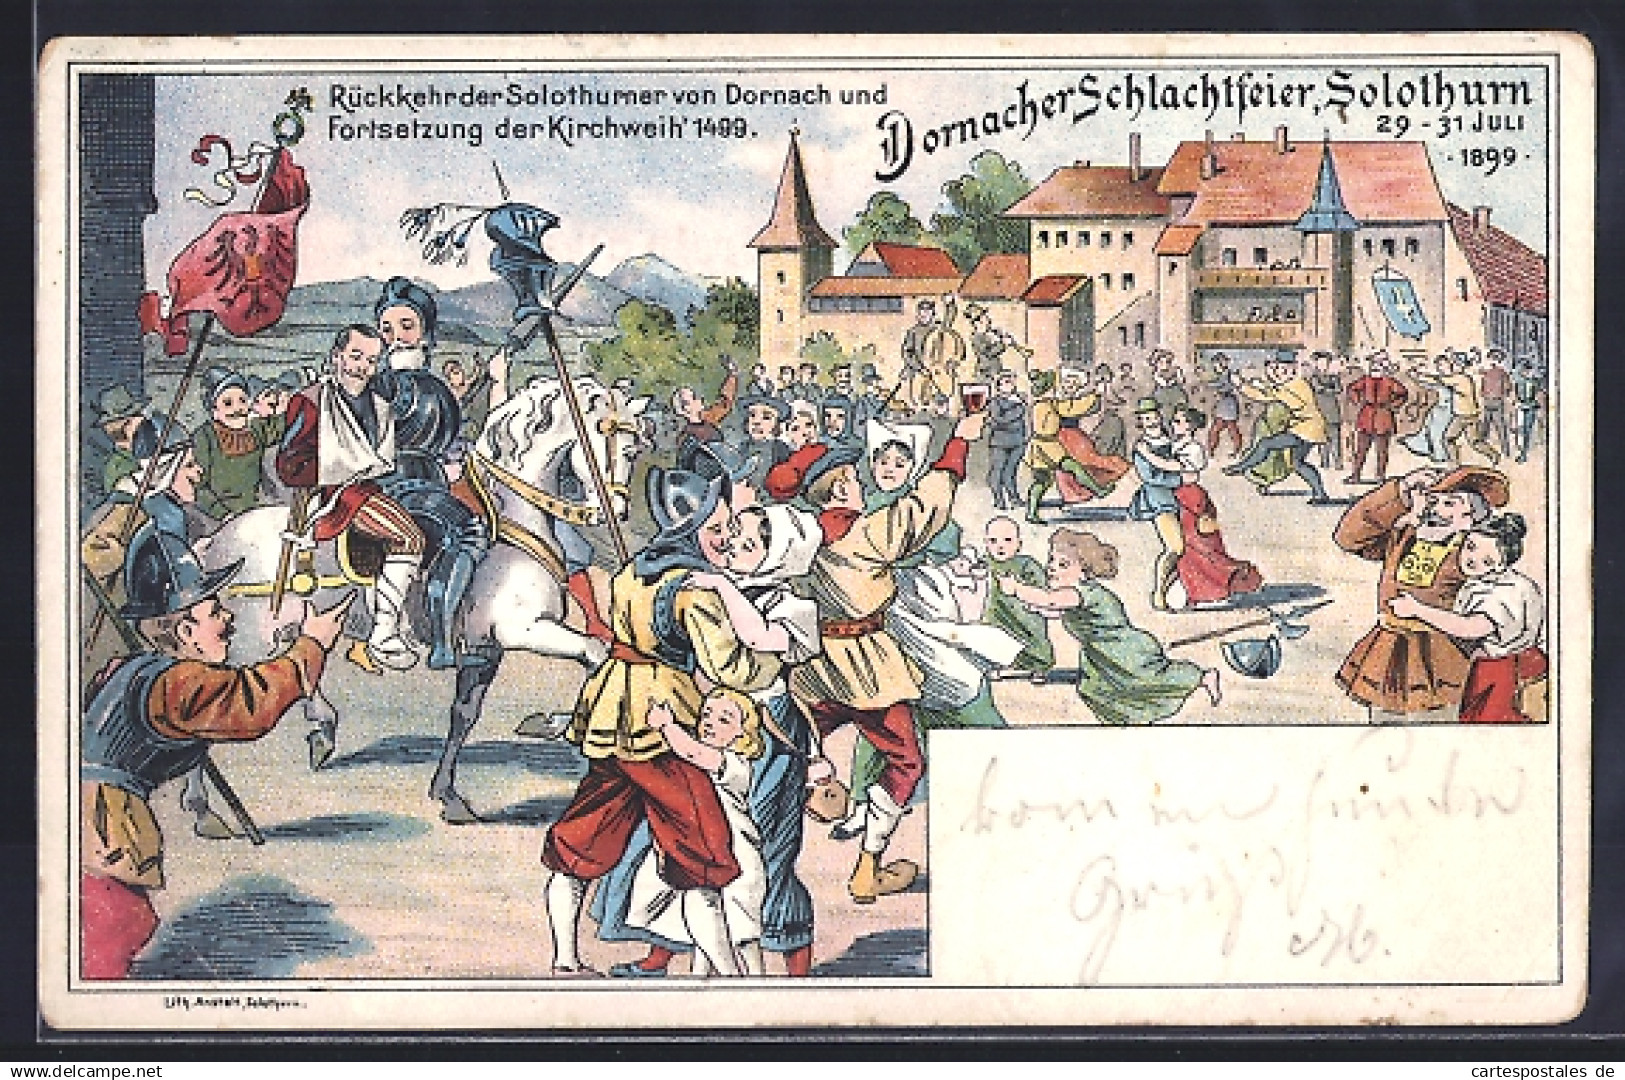 Rückkehr der Solothurner von Dornach und
Fortsetzung der Kirchweih' 1499.
Dornacher Schlachtfeier, Solothurn
29 - 31 JULI
· 1899 ·
Lith. Anstalt, Solothurn.
www.cartespostales.de